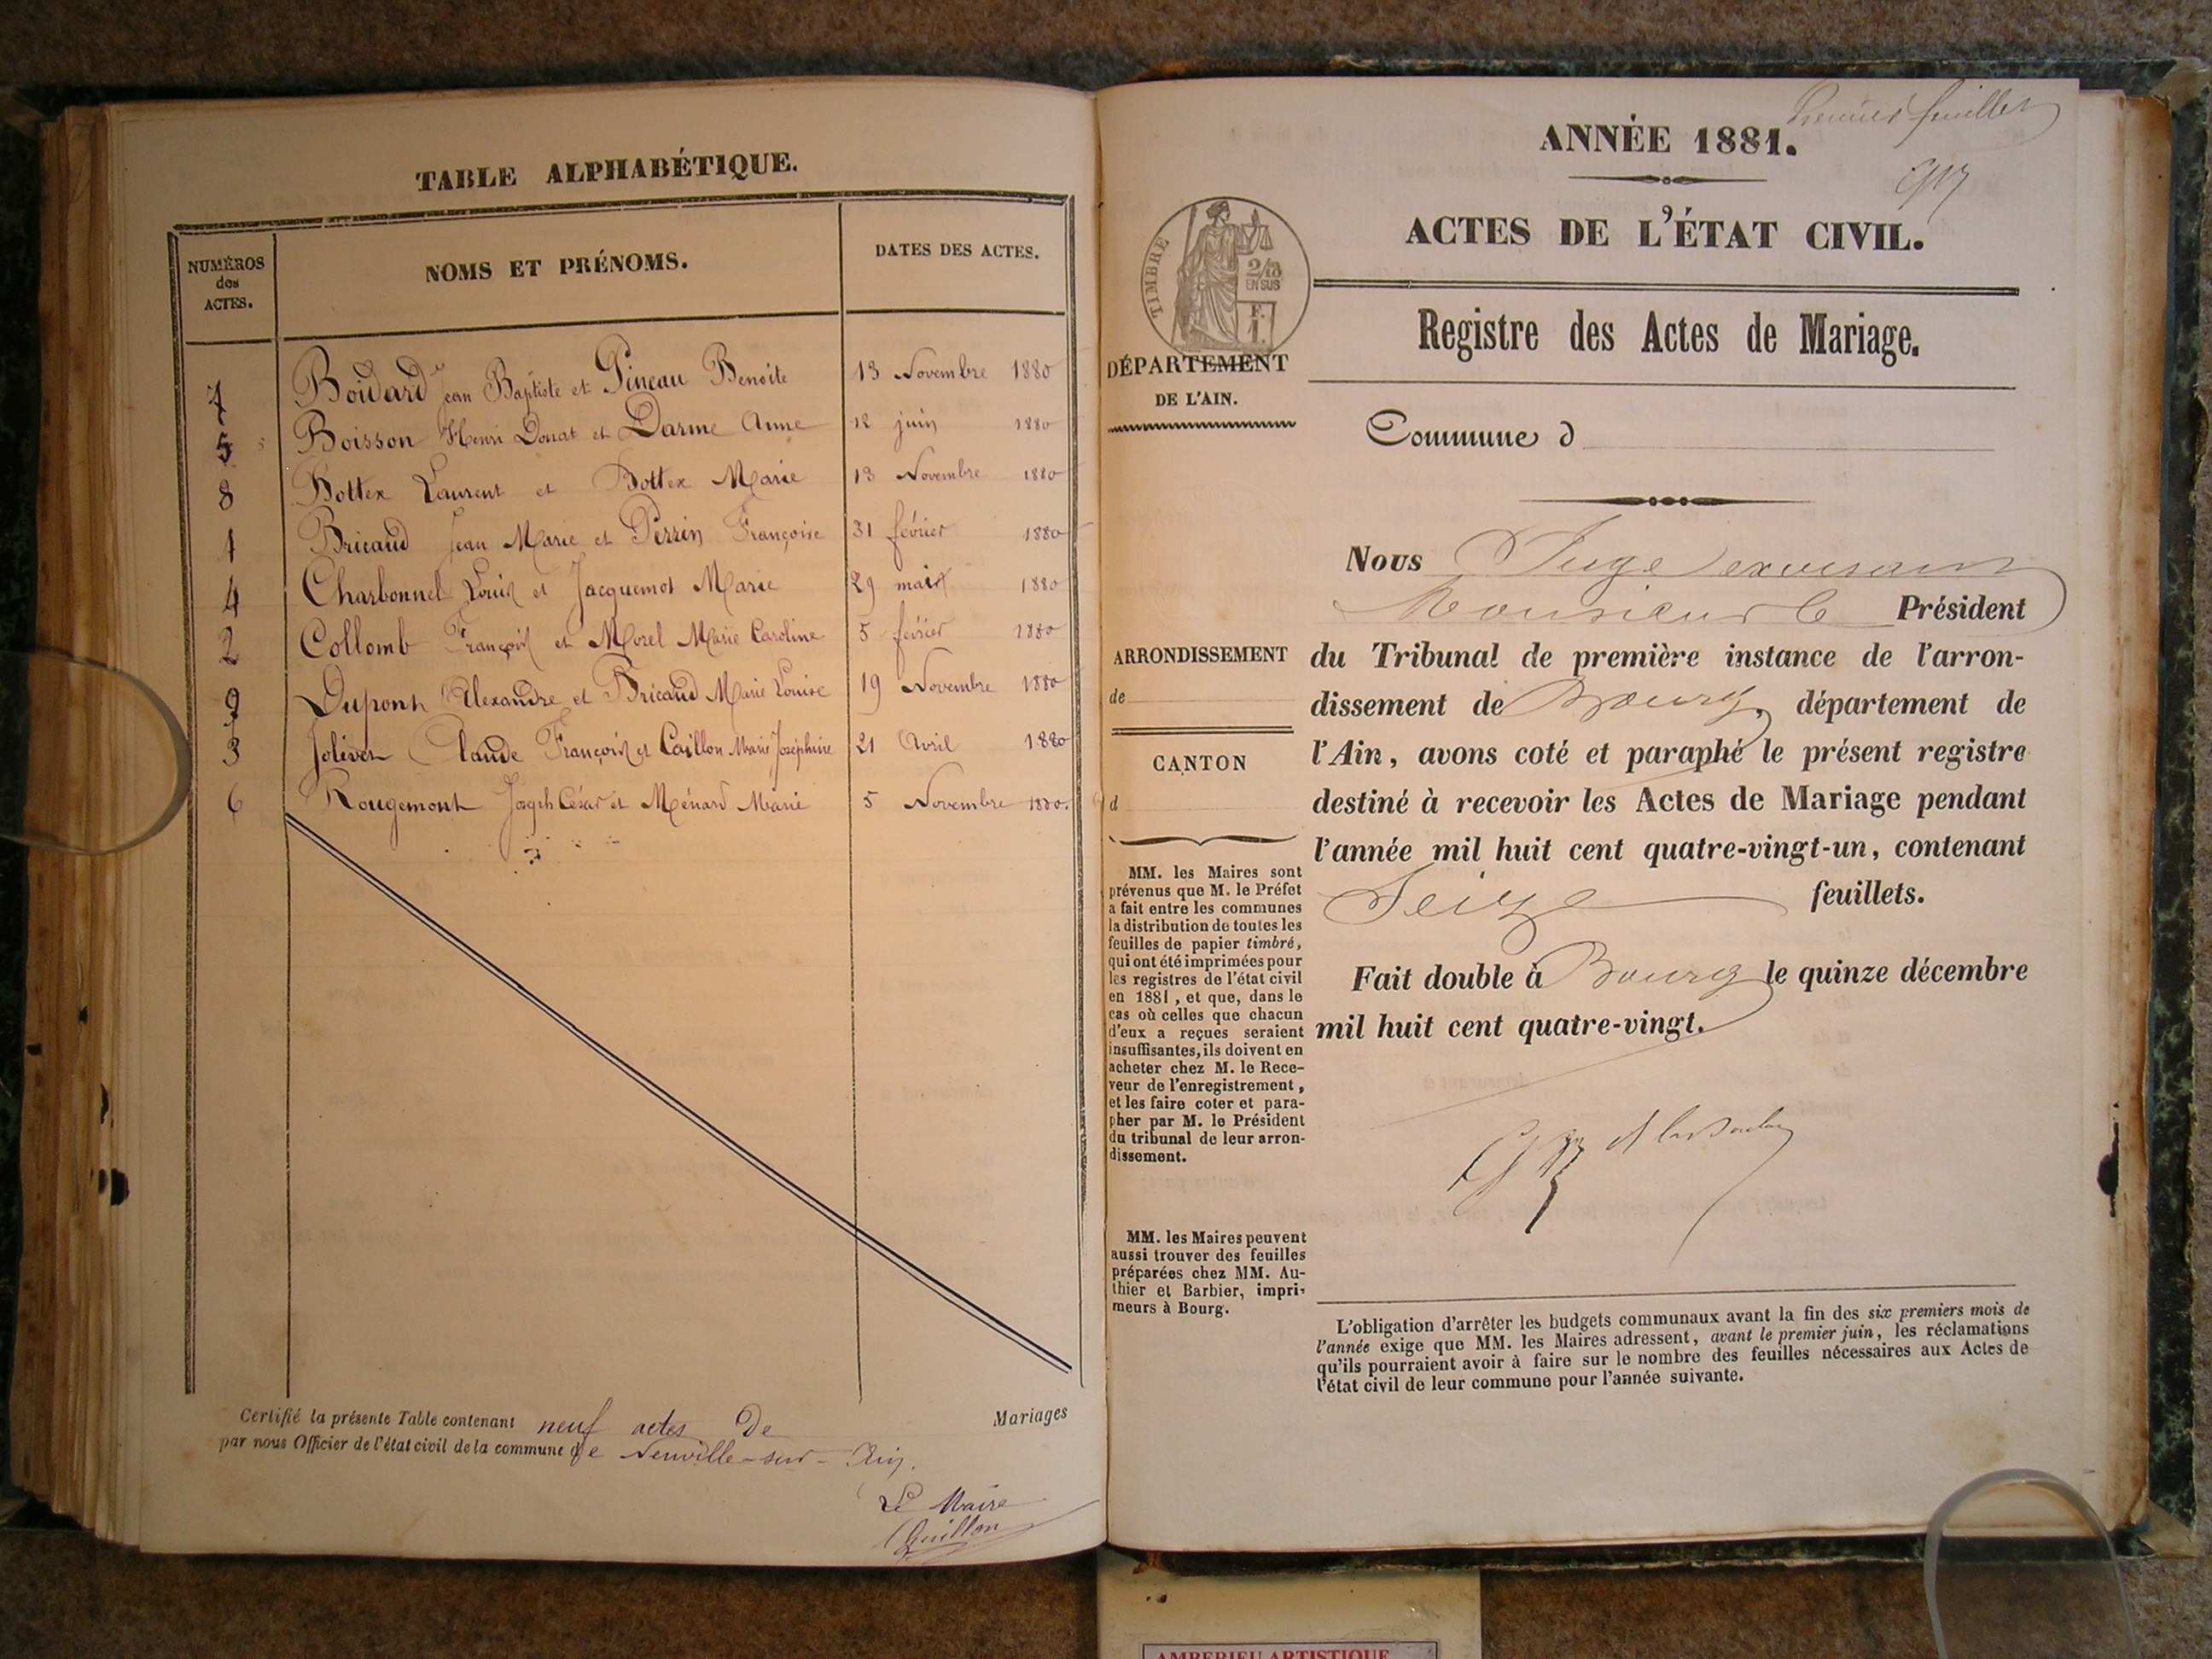 TABLE ALPHABÉTIQUE.
NUMÉROS des ACTES. NOMS ET PRÉNOMS. DATES DES ACTES.
7 Boidard Jean Baptiste et Pineau Benoite 13 Novembre 1880
5 Boisson Henri Donat et Darme Anne 12 juin 1880
8 Bottex Laurent et Bottex Marie 13 Novembre 1880
1 Bricaud Jean Marie et Perrin Françoise 31 février 1880
4 Charbonnel Louis et Jacquemot Marie 29 mai 1880
2 Collomb François et Morel Marie Caroline 5 février 1880
9 Dupont Alexandre et Bricaud Marie Louise 19 Novembre 1880
3 Jolivet Claude François et Caillon Marie Joséphine 21 Avril 1880
6 Rougemont Joseph César et Ménard Marie 5 Novembre 1880.
Certifié la présente Table contenant neuf actes de Mariages
par nous Officier de l'état civil de la commune de Neuville-sur-Ain.
Le Maire
Guillon
Premier feuillet
ANNÉE 1881.
ACTES DE L'ÉTAT CIVIL.
TIMBRE
2/10
EN SUS
F.
1.
Registre des Actes de Mariage.
DÉPARTEMENT
DE L'AIN.
Commune d
Nous Juge exerçant
Monsieur le Président
ARRONDISSEMENT
de
CANTON
d
du Tribunal de première instance de l'arron-
dissement de Bourg, département de
l'Ain, avons coté et paraphé le présent registre
destiné à recevoir les Actes de Mariage pendant
l'année mil huit cent quatre-vingt-un, contenant
Seize feuillets.
Fait double à Bourg le quinze décembre
mil huit cent quatre-vingt.
MM. les Maires sont
prévenus que M. le Préfet
a fait entre les communes
la distribution de toutes les
feuilles de papier timbré,
qui ont été imprimées pour
les registres de l'état civil
en 1881, et que, dans le
cas où celles que chacun
d'eux a reçues seraient
insuffisantes, ils doivent en
acheter chez M. le Rece-
veur de l'enregistrement,
et les faire coter et para-
pher par M. le Président
du tribunal de leur arron-
dissement.
MM. les Maires peuvent
aussi trouver des feuilles
préparées chez MM. Au-
thier et Barbier, impri-
meurs à Bourg.
L'obligation d'arrêter les budgets communaux avant la fin des six premiers mois de
l'année exige que MM. les Maires adressent, avant le premier juin, les réclamations
qu'ils pourraient avoir à faire sur le nombre des feuilles nécessaires aux Actes de
l'état civil de leur commune pour l'année suivante.
AMBERIEU ARTISTIQUE